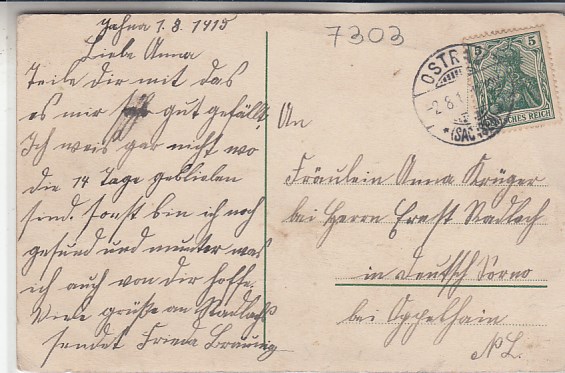 Jahna 1.8. 1915
Liebe Anna
Teile dir mit das
es mir gut gefällt,
Ich weis gar nicht wo
die 14 Tage geblieben
sind. Sonst bin ich noch
gesund und munter was
ich auch von dir hoffe.
Viele grüße an
sendet Frieda Bräunig
7303
OSTR
-2.8.1
*(SAC
5
5
DEUTSCHES REICH
An
Fräulein Anna Krüger
bei Herrn Ernst Nadlach
in Deutsch Sorno
bei Oppelhain
NL.